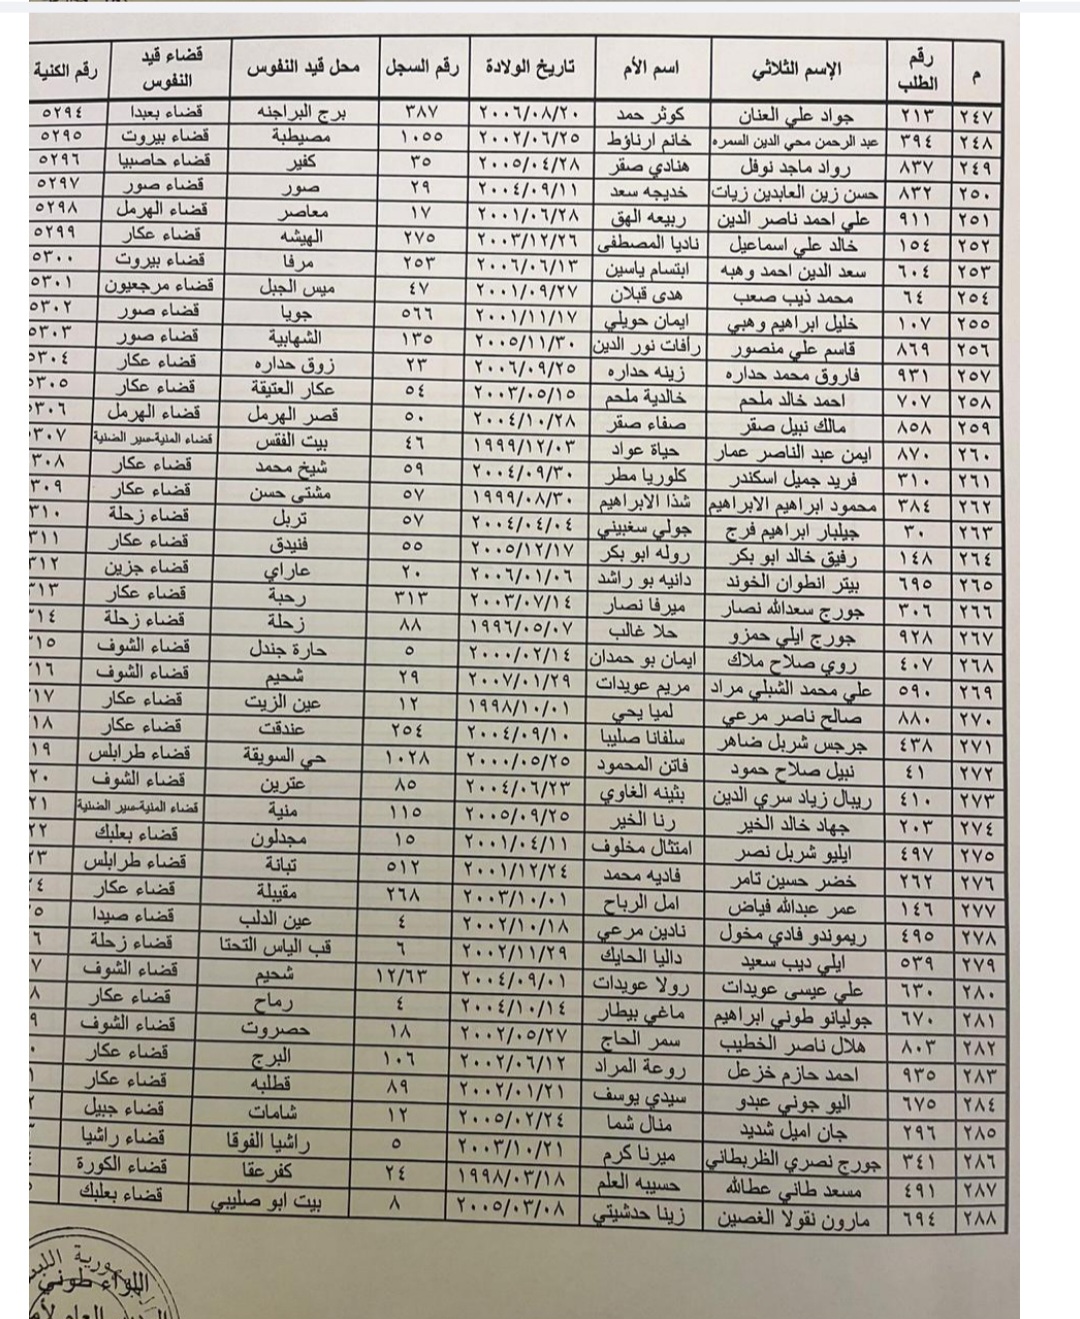 م رقم الطلب الإسم الثلاثي اسم الأم تاريخ الولادة رقم السجل محل قيد النفوس قضاء قيد النفوس رقم الكنية
٢٤٧ ٢١٣ جواد علي العنان كوثر حمد ٢٠٠٦/٠٨/٢٠ ٣٨٧ برج البراجنه قضاء بعبدا ٥٢٩٤
٢٤٨ ٣٩٤ عبد الرحمن محي الدين السمره خانم ارناؤط ٢٠٠٢/٠٦/٢٥ ١٠٥٥ مصيطبة قضاء بيروت ٥٢٩٥
٢٤٩ ٨٣٧ رواد ماجد نوفل هنادي صقر ٢٠٠٥/٠٤/٢٨ ٣٥ كفير قضاء حاصبيا ٥٢٩٦
٢٥٠ ٨٣٢ حسن زين العابدين زيات خديجه سعد ٢٠٠٤/٠٩/١١ ٢٩ صور قضاء صور ٥٢٩٧
٢٥١ ٩١١ علي احمد ناصر الدين ربيعه الهق ٢٠٠١/٠٦/٢٨ ١٧ معاصر قضاء الهرمل ٥٢٩٨
٢٥٢ ١٥٤ خالد علي اسماعيل ناديا المصطفى ٢٠٠٣/١٢/٢٦ ٢٧٥ الهيشه قضاء عكار ٥٢٩٩
٢٥٣ ٦٠٤ سعد الدين احمد وهبه ابتسام ياسين ٢٠٠٦/٠٦/١٣ ٢٥٣ مرفا قضاء بيروت ٥٣٠٠
٢٥٤ ٦٤ محمد ذيب صعب هدى قبلان ٢٠٠١/٠٩/٢٧ ٤٧ ميس الجبل قضاء مرجعيون ٥٣٠١
٢٥٥ ١٠٧ خليل ابراهيم وهبي ايمان حويلي ٢٠٠١/١١/١٧ ٥٦٦ جويا قضاء صور ٥٣٠٢
٢٥٦ ٨٦٩ قاسم علي منصور رأفات نور الدين ٢٠٠٥/١١/٣٠ ١٣٥ الشهابية قضاء صور ٥٣٠٣
٢٥٧ ٩٣١ فاروق محمد حداره زينه حداره ٢٠٠٦/٠٩/٢٥ ٢٣ زوق حداره قضاء عكار ٥٣٠٤
٢٥٨ ٧٠٧ احمد خالد ملحم خالدية ملحم ٢٠٠٣/٠٥/١٥ ٥٤ عكار العتيقة قضاء عكار ٥٣٠٥
٢٥٩ ٨٥٨ مالك نبيل صقر صفاء صقر ٢٠٠٤/١٠/٢٨ ٥٠ قصر الهرمل قضاء الهرمل ٥٣٠٦
٢٦٠ ٨٧٠ ايمن عبد الناصر عمار حياة عواد ١٩٩٩/١٢/٠٣ ٤٦ بيت الفقس قضاء المنية-سير الضنية ٥٣٠٧
٢٦١ ٣١٠ فريد جميل اسكندر كلوريا مطر ٢٠٠٤/٠٩/٣٠ ٥٩ شيخ محمد قضاء عكار ٣٠٨
٢٦٢ ٣٨٤ محمود ابراهيم الابراهيم شذا الابراهيم ١٩٩٩/٠٨/٣٠ ٥٧ مشتى حسن قضاء عكار ٣٠٩
٢٦٣ ٣٠ جيلبار ابراهيم فرج جولي سغبيني ٢٠٠٤/٠٤/٠٤ ٥٧ تربل قضاء زحلة ٣١٠
٢٦٤ ١٤٨ رفيق خالد ابو بكر روله ابو بكر ٢٠٠٥/١٢/١٧ ٥٥ فنيدق قضاء عكار ٣١١
٢٦٥ ٦٩٥ بيتر انطوان الخوند دانيه بو راشد ٢٠٠٦/٠١/٠٦ ٢٠ عاراي قضاء جزين ٣١٢
٢٦٦ ٣٠٦ جورج سعدالله نصار ميرفا نصار ٢٠٠٣/٠٧/١٤ ٣١٣ رحبة قضاء عكار ٣١٣
٢٦٧ ٩٢٨ جورج ايلي حمزو حلا غالب ١٩٩٦/٠٥/٠٧ ٨٨ زحلة قضاء زحلة ٣١٤
٢٦٨ ٤٠٧ روي صلاح ملاك ايمان بو حمدان ٢٠٠٠/٠٢/١٤ ٥ حارة جندل قضاء الشوف ٣١٥
٢٦٩ ٥٩٠ علي محمد الشبلي مراد مريم عويدات ٢٠٠٧/٠١/٢٩ ٢٩ شحيم قضاء الشوف ١٦
٢٧٠ ٨٨٠ صالح ناصر مرعي لميا يحي ١٩٩٨/١٠/٠١ ١٢ عين الزيت قضاء عكار ١٧
٢٧١ ٤٣٨ جرجس شربل ضاهر سلفانا صليبا ٢٠٠٤/٠٩/١٠ ٢٥٤ عندقت قضاء عكار ١٨
٢٧٢ ٤١ نبيل صلاح حمود فاتن المحمود ٢٠٠٠/٠٥/٢٥ ١٠٢٨ حي السويقة قضاء طرابلس ١٩
٢٧٣ ٤١٠ ريبال زياد سري الدين بثينه الغاوي ٢٠٠٤/٠٦/٢٣ ٨٥ عترين قضاء الشوف ٢٠
٢٧٤ ٢٠٣ جهاد خالد الخير رنا الخير ٢٠٠٥/٠٩/٢٥ ١١٥ منية قضاء المنية-سير الضنية ٢١
٢٧٥ ٤٩٧ ايليو شربل نصر امتثال مخلوف ٢٠٠١/٠٤/١١ ١٥ مجدلون قضاء بعلبك ٢٢
٢٧٦ ٢٦٢ خضر حسين تامر فاديه محمد ٢٠٠١/١٢/٢٤ ٥١٢ تبانة قضاء طرابلس ٢٣
٢٧٧ ١٤٦ عمر عبدالله فياض امل الرباح ٢٠٠٣/١٠/٠١ ٢٦٨ مقيبلة قضاء عكار ٢٤
٢٧٨ ٤٩٥ ريموندو فادي مخول نادين مرعي ٢٠٠٢/١٠/١٨ ٤ عين الدلب قضاء صيدا ٥
٢٧٩ ٥٣٩ ايلي ديب سعيد داليا الحايك ٢٠٠٢/١١/٢٩ ٦ قب الياس التحتا قضاء زحلة ٦
٢٨٠ ٦٣٠ علي عيسى عويدات رولا عويدات ٢٠٠٤/٠٩/٠١ ١٢/٦٣ شحيم قضاء الشوف ٧
٢٨١ ٦٧٠ جوليانو طوني ابراهيم ماغي بيطار ٢٠٠٤/١٠/١٤ ٤ رماح قضاء عكار ٨
٢٨٢ ٨٠٣ هلال ناصر الخطيب سمر الحاج ٢٠٠٢/٠٥/٢٧ ١٨ حصروت قضاء الشوف ٩
٢٨٣ ٩٣٥ احمد حازم خزعل روعة المراد ٢٠٠٢/٠٦/١٢ ١٠٦ البرج قضاء عكار ٠
٢٨٤ ٦٧٥ اليو جوني عبدو سيدي يوسف ٢٠٠٢/٠١/٢١ ٨٩ قطلبه قضاء عكار ١
٢٨٥ ٢٩٦ جان اميل شديد منال شما ٢٠٠٥/٠٢/٢٤ ١٢ شامات قضاء جبيل ٢
٢٨٦ ٣٤١ جورج نصري الظربطاني ميرنا كرم ٢٠٠٣/١٠/٢١ ٥ راشيا الفوقا قضاء راشيا
٢٨٧ ٤٩١ مسعد طاني عطالله حسيبه العلم ١٩٩٨/٠٣/١٨ ٢٤ كفر عقا قضاء الكورة
٢٨٨ ٦٩٤ مارون نقولا الغصين زينا حدشيتي ٢٠٠٥/٠٣/٠٨ ٨ بيت ابو صليبي قضاء بعلبك
اللواء طوني